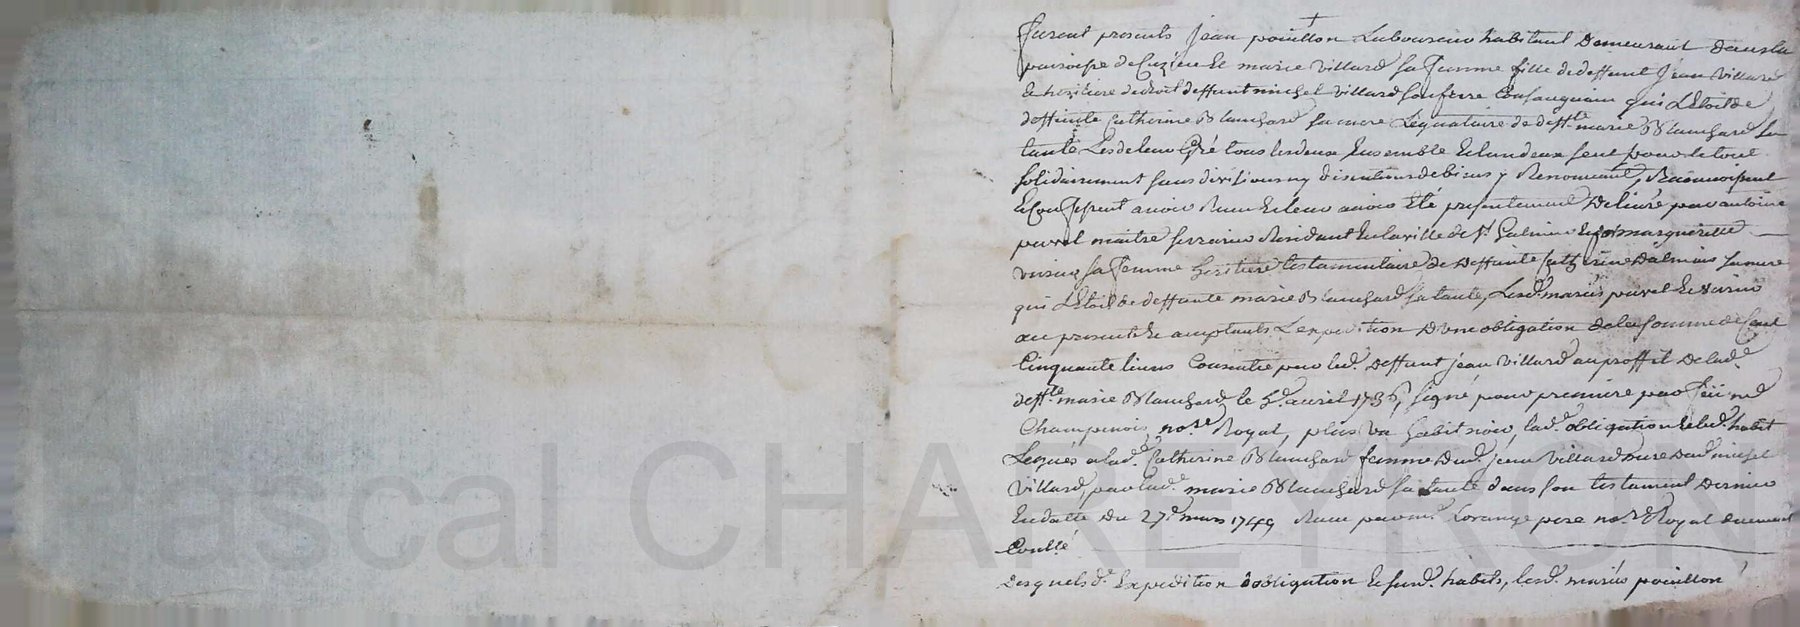 furent presents jean pouillon Laboureur habitant demeurant dans la
paroisse de Cuzieu Et marie Villard sa femme fille de deffunt jean Villard
& heritiere de deffunt michel Villard son frere Consanguin qui L'Etoit de
deffunte Catherine Blanchard sa mere Légataire de defft.e marie Blanchard sa
tante Lesdeleur Gré tous les deux Ensemble Et lun deux seul pour le tout
solidairement sans division ny discution de biens y Renonceant, Reconnoissent
& Confessent avoir Receu Et leur avoir Eté presentement Delivré par antoine
pavet maitre serrurier Residant En la ville de St. Galmier Et marguerite
Versier sa femme heritiere testamentaire de Deffunte Catherine Dalmais sa mere
qui L'Etoit de deffunte marie Blanchard sa tante, Lesd. mariés pavet Et Versier
au present Et acceptants L'expedition D'une obligation de la somme de Cent
Cinquante livres Consentie par led. Deffunt jean Villard au proffit De lad.e
defft.e marie Blanchard le 5.e avril 1736, signé pour premiere par feü me
Champenois no.re Royal, plus Un habit noir, lad. obligation Et led. habit
Legués a lad. Catherine Blanchard femme Dud. jean Villard mere dud michel
Villard, par lad. marie Blanchard sa tante dans son testament Dernier
En datte Du 27.e mars 1749 Receu par m.e Lorange pere no.re Royal duement
Conllé
Desquels d.e Expedition d'obligation Et susd. habits, lesd. mariés pouillon
Pascal CHAREYRON